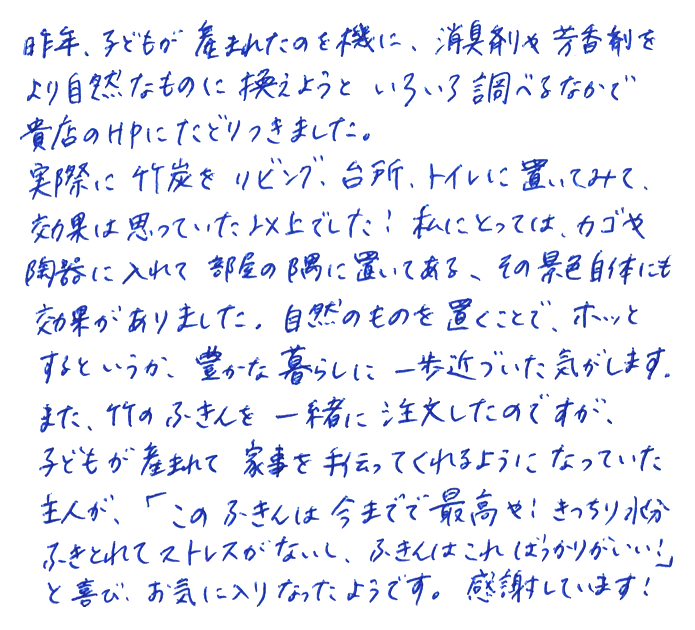 昨年、子どもが産まれたのを機に、消臭剤や芳香剤を
より自然なものに換えようといろいろ調べるなかで
貴店のHPにたどりつきました。
実際に竹炭をリビング、台所、トイレに置いてみて、
効果は思っていた以上でした！私にとっては、カゴや
陶器に入れて部屋の隅に置いてある、その景色自体にも
効果がありました。自然のものを置くことで、ホッと
するというか、豊かな暮らしに一歩近づいた気がします。
また、竹のふきんを一緒に注文したのですが、
子どもが産まれて家事を手伝ってくれるようになっていた
主人が、「このふきんは今までで最高や！きっちり水分
ふきとれてストレスがないし、ふきんはこればっかりがいい！」
と喜び、お気に入りなったようです。感謝しています！